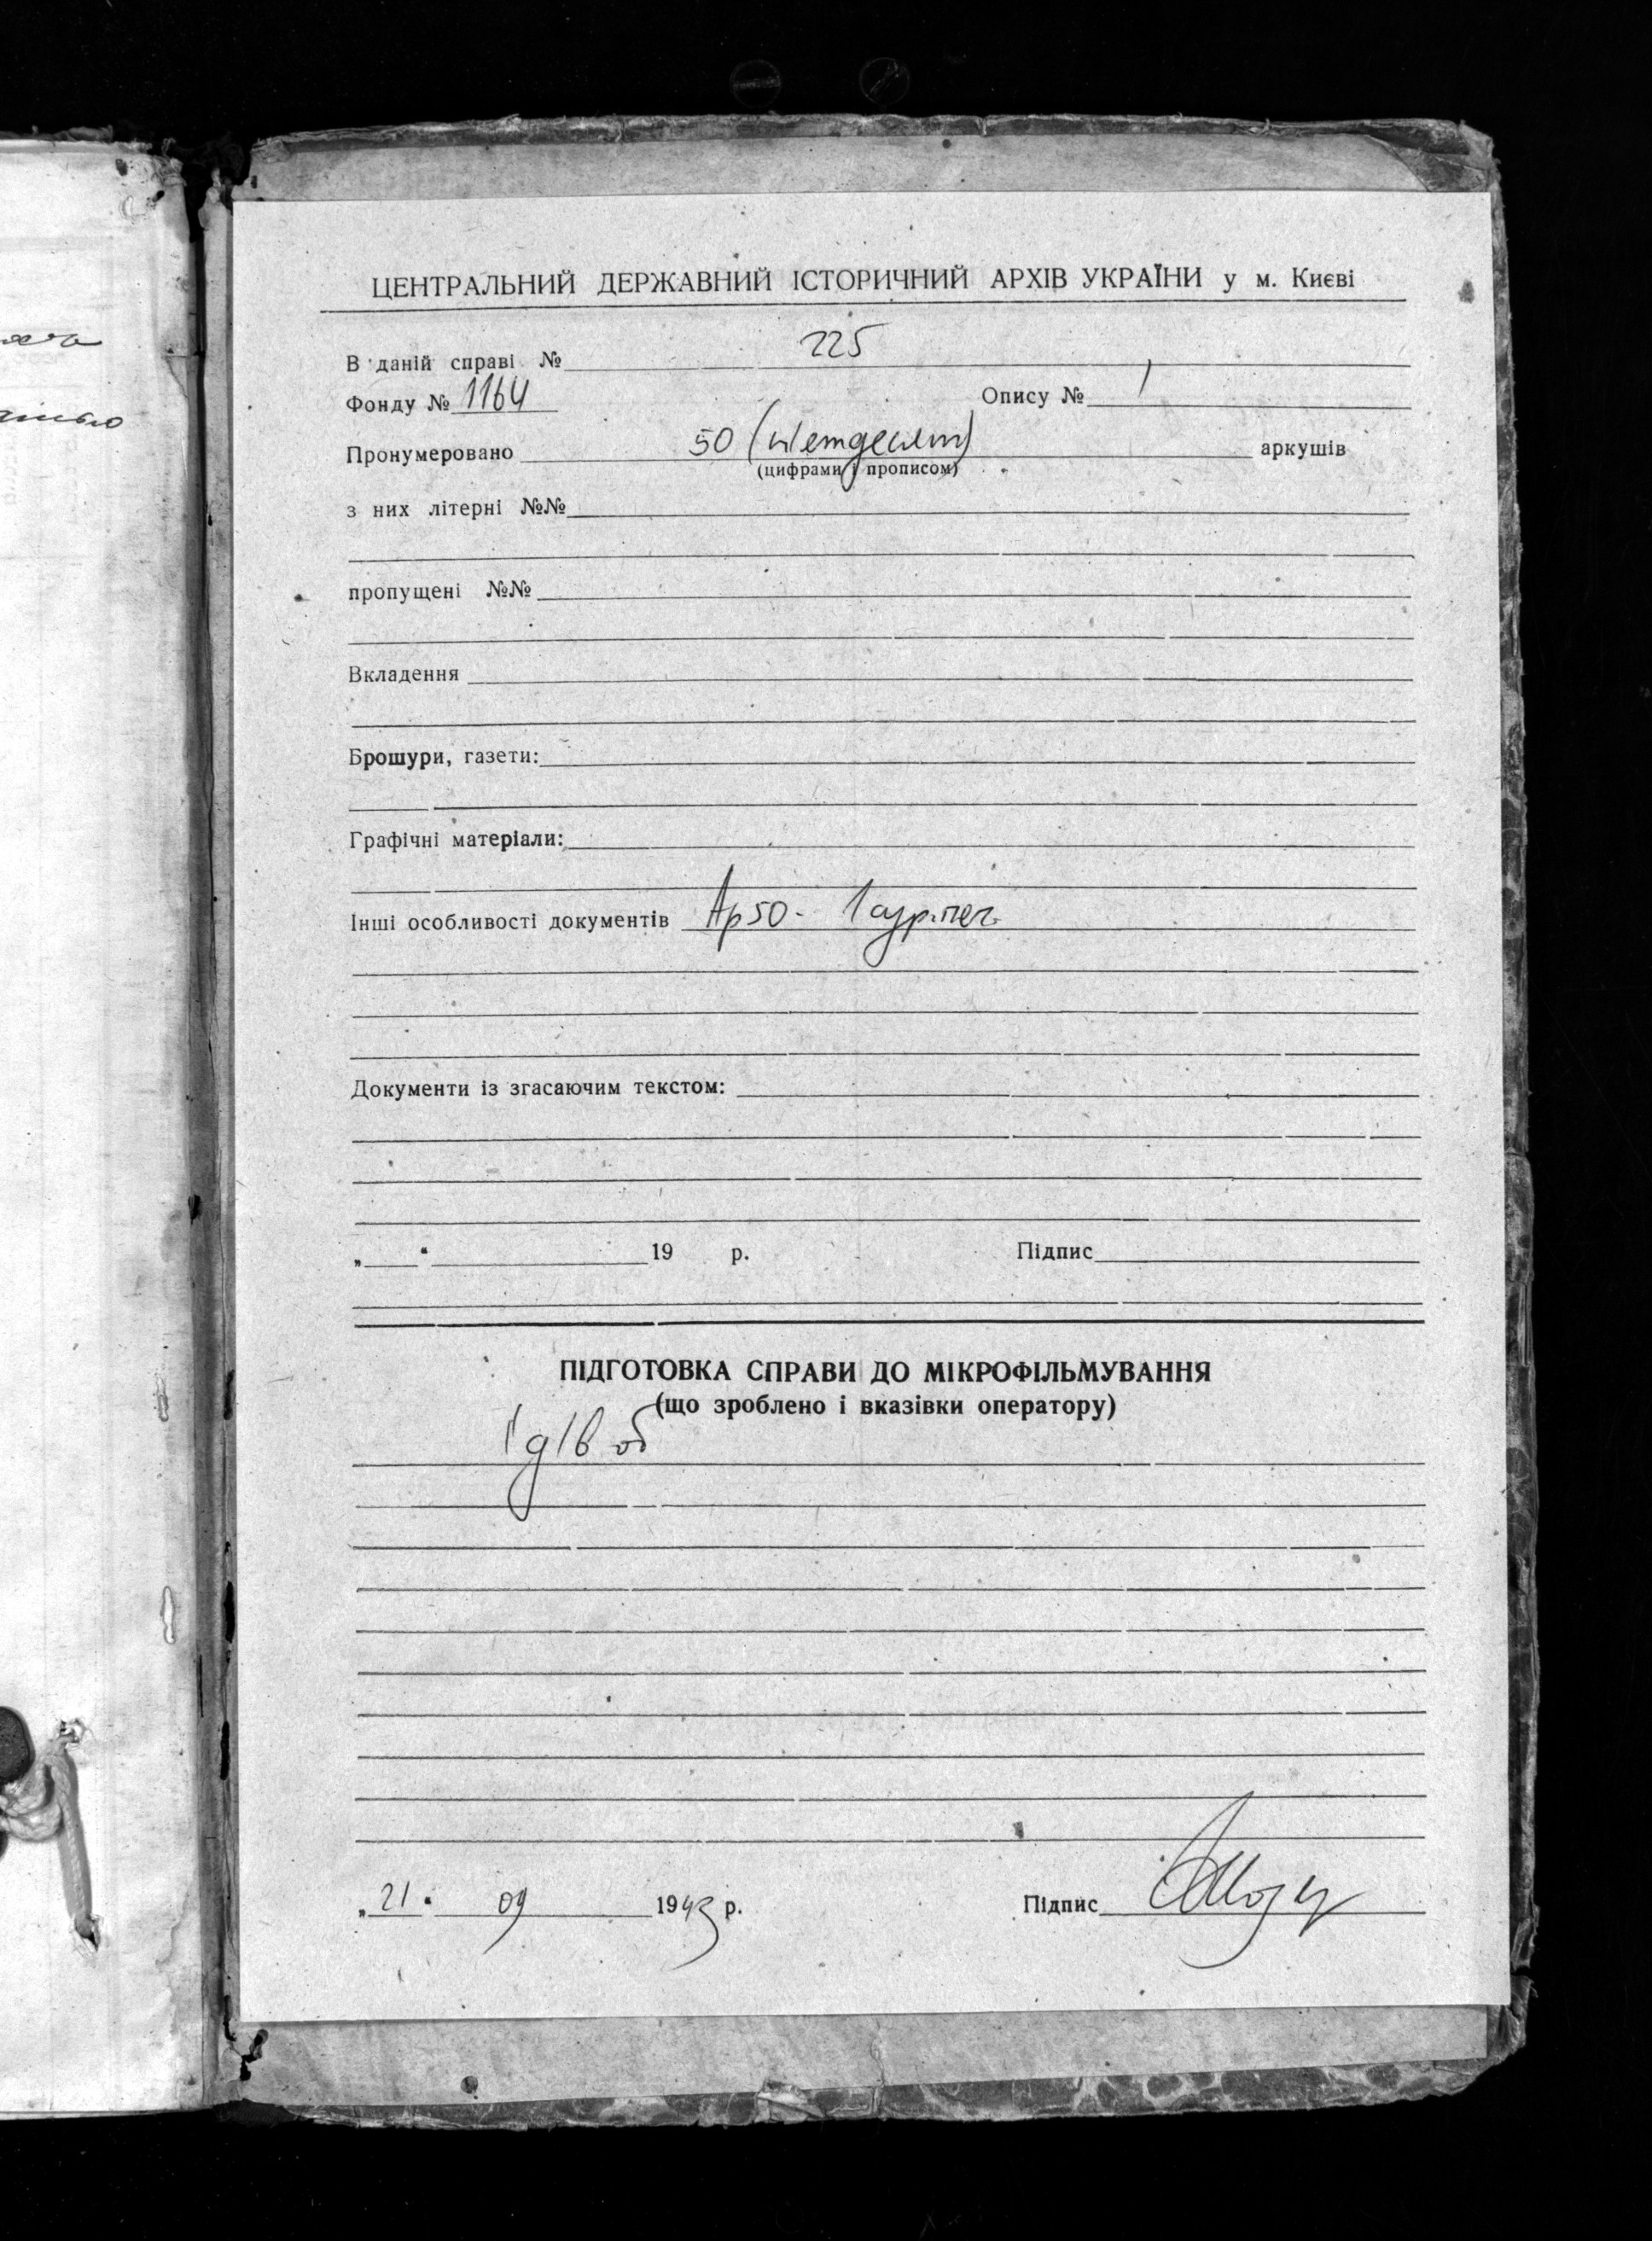 ЦЕНТРАЛЬНИЙ ДЕРЖАВНИЙ ІСТОРИЧНИЙ АРХІВ УКРАЇНИ у м. Києві
В даній справі № 225
Фонду № 1164 Опису № 1
Пронумеровано 50 (п'ятдесят) аркушів
(цифрами і прописом)
з них літерні №№
пропущені №№
Вкладення
Брошури, газети:
Графічні матеріали:
Інші особливості документів Ар 50 - 1 сур. печ.
Документи із згасаючим текстом:
„ “ 19 р. Підпис
ПІДГОТОВКА СПРАВИ ДО МІКРОФІЛЬМУВАННЯ
(що зроблено і вказівки оператору)
„21“ 09 19 р. Підпис